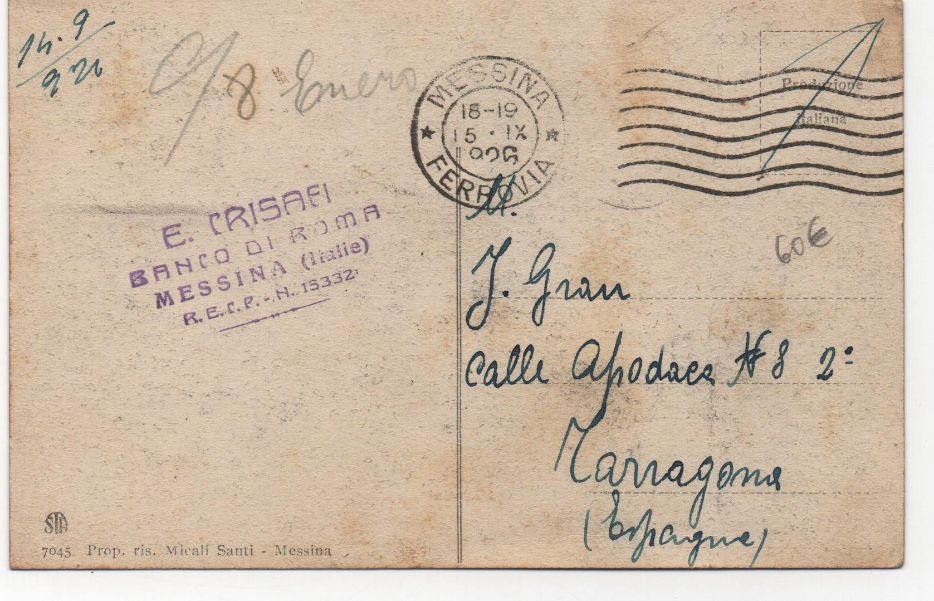 14. 9
926
c/ 8 Enero
MESSINA
18-19
15 · IX
1926
FERROVIA
Produzione
Italiana
E. CRISAFI
BANCO DI ROMA
MESSINA (Italie)
R.E.C.P. - N. 15332
60€
M.
J. Gran
Calle Apodaca N 8 2º
Tarragona
(Espagne)
STA
7045 Prop. ris. Micali Santi - Messina